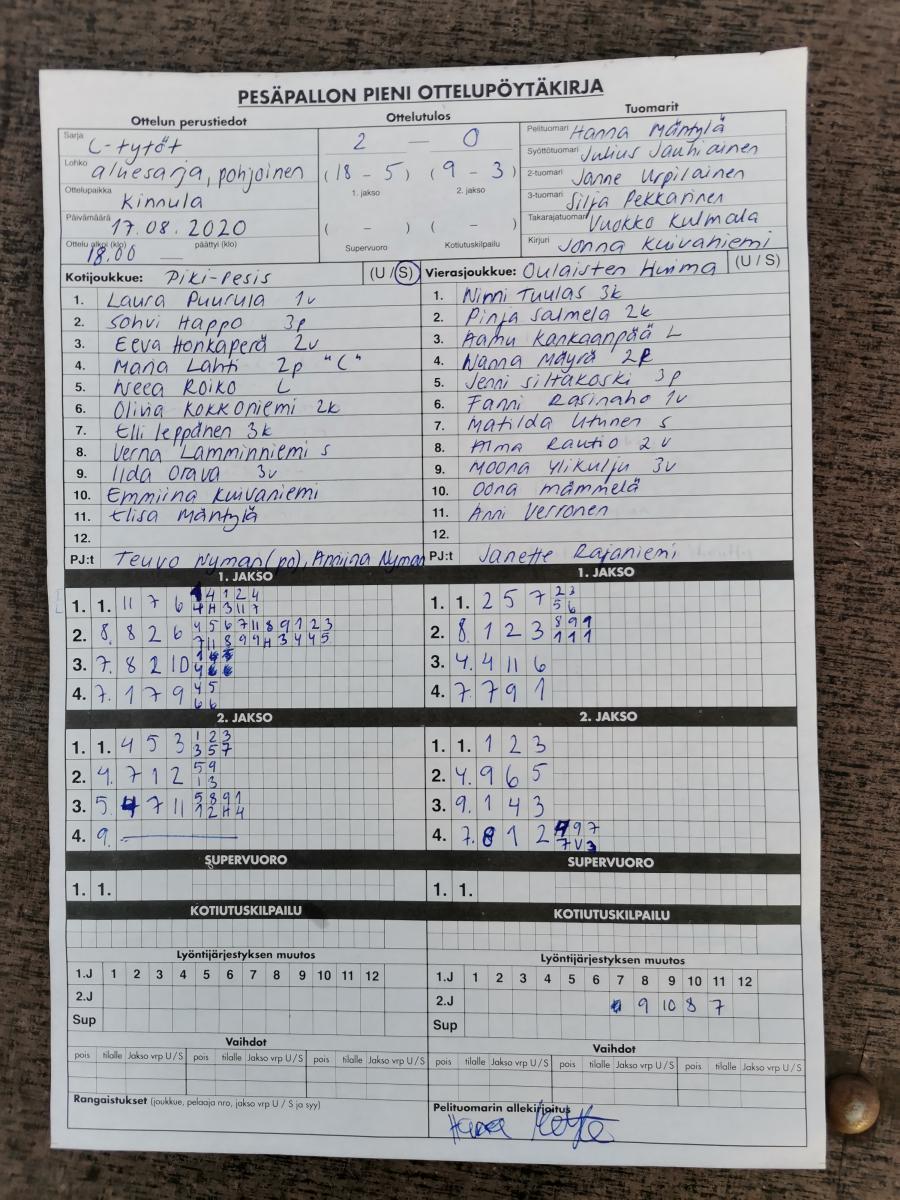 PESÄPALLON PIENI OTTELUPÖYTÄKIRJA
Ottelun perustiedot Ottelutulos Tuomarit
Sarja C-tytöt
Lohko aluesarja, pohjoinen
Ottelupaikka Kinnula
Päivämäärä 17.08.2020
Ottelu alkoi (klo) päättyi (klo)
18.00 —
2 — 0
(18 - 5) (9 - 3)
1. jakso 2. jakso
( - ) ( - )
Supervuoro Kotiutuskilpailu
Pelituomari Hanna Mäntylä
Syöttötuomari Julius Jauhiainen
2-tuomari Janne Urpilainen
3-tuomari Silja Pekkarinen
Takarajatuomari Vuokko Kulmala
Kirjuri Jonna Kuivaniemi
Kotijoukkue: Piki-Pesis (U / S)
1. Laura Puurula 1v
2. Sohvi Happo 3p
3. Eeva Honkaperä 2v
4. Maria Lahti 2p "C"
5. Neea Roiko L
6. Olivia Kokkoniemi 2k
7. Elli Leppänen 3k
8. Verna Lamminniemi S
9. Iida Orava 3v
10. Emmiina Kuivaniemi
11. Elisa Mäntylä
12.
PJ:t Teuvo Nyman (po), Anniina Nyman
Vierasjoukkue: Oulaisten Huima (U / S)
1. Ninni Tuulas 3k
2. Pinja Salmela 2k
3. Aamu Kankaanpää L
4. Nanna Mäyrä 2p
5. Jenni Siltakoski 3p
6. Fanni Rasinaho 1v
7. Matilda Utunen S
8. Alma Rautio 2v
9. Moona Ylikulju 3v
10. Oona Mämmelä
11. Anni Verronen
12.
PJ:t Janette Rajaniemi
1. JAKSO
1. 1. 11 7 6 4 1 2 4
4 H 3 11 7
2. 8. 8 2 6 4 5 6 7 11 8 9 1 2 3
7 11 8 9 9 H 3 4 4 5
3. 7. 8 2 10
4. 7. 1 7 9 4 5
6 6
1. JAKSO
1. 1. 2 5 7 2 3
5 6
2. 8. 1 2 3 8 9 1
1 1 1
3. 4. 4 11 6
4. 7. 7 9 1
2. JAKSO
1. 1. 4 5 3 1 2 3
3 5 7
2. 4. 7 1 2 5 9
1 3
3. 5. 4 7 11 5 8 9 1
1 2 H 4
4. 9. —
2. JAKSO
1. 1. 1 2 3
2. 4. 9 6 5
3. 9. 1 4 3
4. 7. 8 1 2 9 7
7 V 3
SUPERVUORO
1. 1.
SUPERVUORO
1. 1.
KOTIUTUSKILPAILU
KOTIUTUSKILPAILU
Lyöntijärjestyksen muutos
1.J 1 2 3 4 5 6 7 8 9 10 11 12
2.J
Sup
Lyöntijärjestyksen muutos
1.J 1 2 3 4 5 6 7 8 9 10 11 12
2.J 9 10 8 7
Sup
Vaihdot
pois tilalle Jakso vrp U / S pois tilalle Jakso vrp U / S pois tilalle Jakso vrp U / S
Vaihdot
pois tilalle Jakso vrp U / S pois tilalle Jakso vrp U / S pois tilalle Jakso vrp U / S
Rangaistukset (joukkue, pelaaja nro, jakso vrp U / S ja syy)
Pelituomarin allekirjoitus